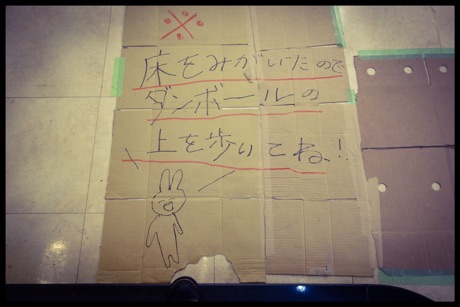 ※
床をみがいたので
ダンボールの
上を歩いてね!